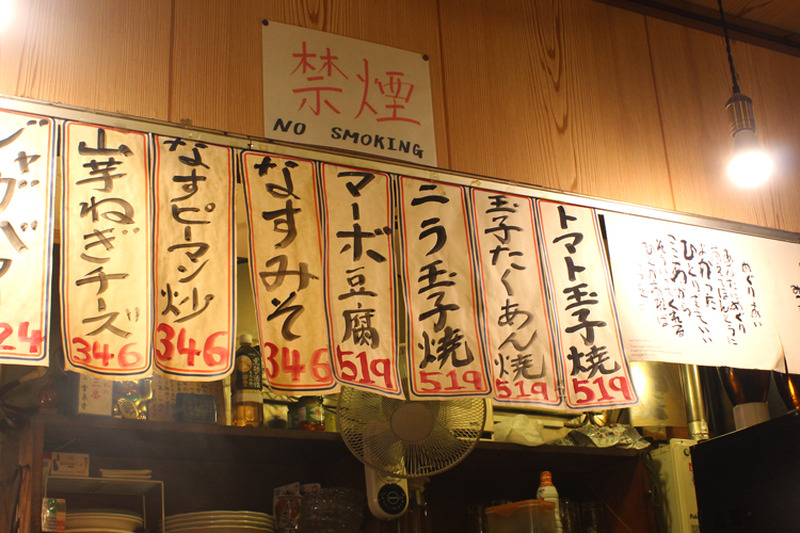 禁煙
NO SMOKING
じゃがバター
24
山芋ねぎチーズ
346
なすピーマン炒
346
なすみそ
346
マーボ豆腐
519
ニラ玉子焼
519
玉子たくあん焼
519
トマト玉子焼
519
めぐりあい